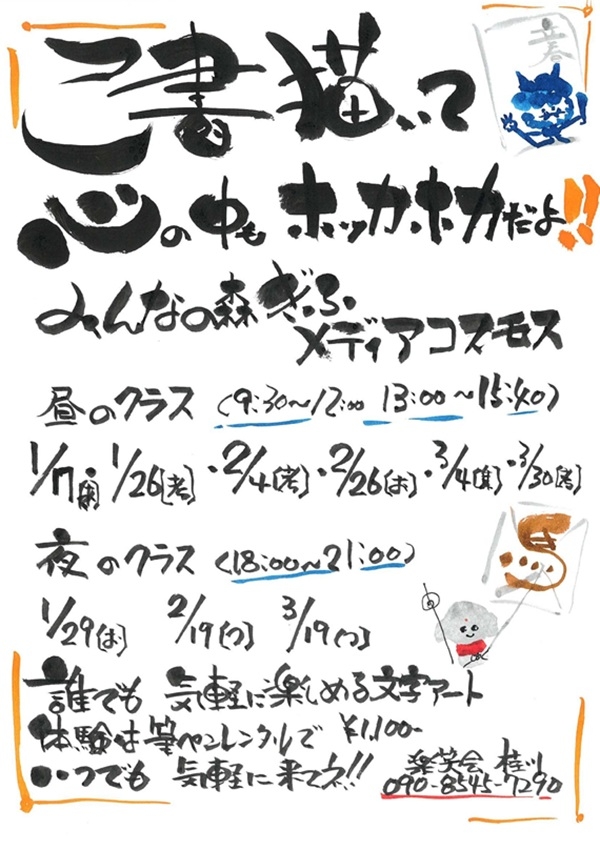 己書 描いて
立春
心の中も ホッカホカだよ!!
みんなの森 ぎふ
メディアコスモス
昼のクラス (9:30〜12:00 13:00〜15:40)
1/26[考] ・2/4[考] ・2/26[お] ・3/30[考]
夜のクラス (18:00〜21:00)
1/29[お] 2/19[つ] 3/19[つ]
誰でも 気軽に楽しめる文字アート
体験は筆ペンレンタルで ¥1,100-
いつでも 気軽に来てネ!!
楽笑会 桂川
090-8545-7290